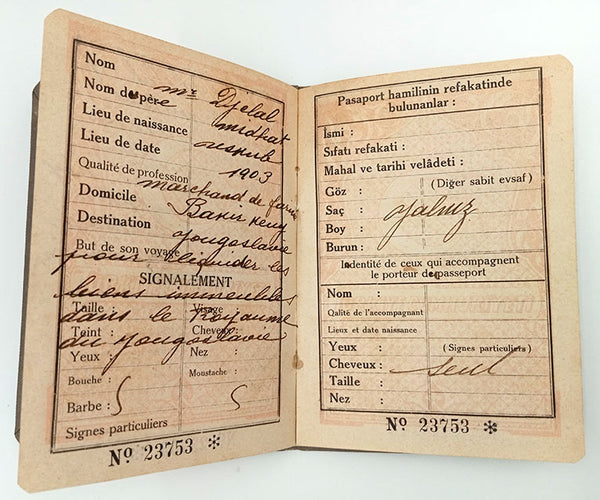 Nom
mr Djelal
Nom du père
midhat
Lieu de naissance
Uskub
Lieu de date
1903
Qualité de profession
marchand de farine
Domicile
Bakir Keuy
Destination
Yougoslavie
But de son voyage
pour liquider les
SIGNALEMENT
biens immeubles
Taille : Visage
dans le Royaume
Teint : Cheveux :
du Yougoslavie
Yeux : Nez :
Bouche : Moustache :
Barbe :
Signes particuliers
Nº 23753 *
Pasaport hamilinin refakatinde
bulunanlar :
İsmi :
Sıfatı refakati :
Mahal ve tarihi velâdeti :
Göz : (Diğer sabit evsaf)
Saç : yalnız
Boy :
Burun :
Indentité de ceux qui accompagnent
le porteur de passeport
Nom :
Qalité de l'accompagnant
Lieux et date naissance
Yeux : (Signes particuliers)
Cheveux : seul
Taille :
Nez :
Nº 23753 *